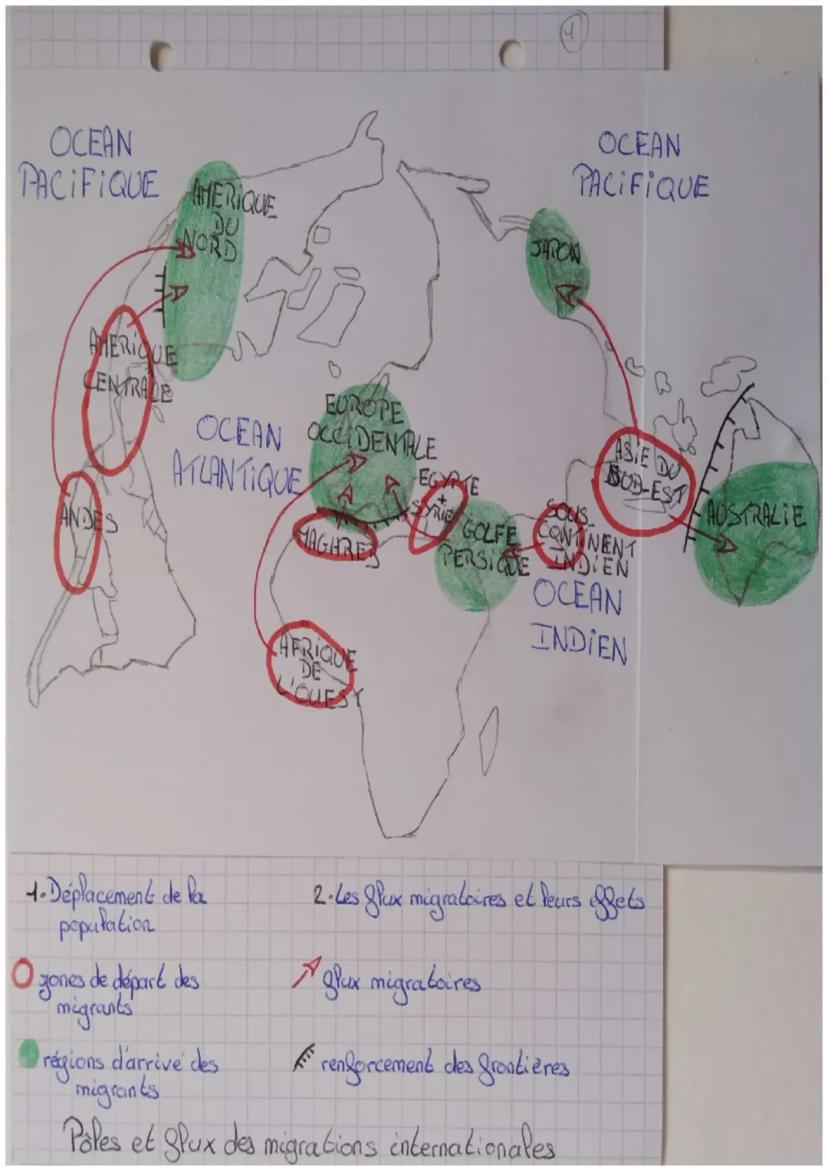 1
OCEAN
PACIFIQUE
OCEAN
PACIFIQUE
AMERIQUE
DU
NORD
JAPON
AMERIQUE
CENTRALE
EUROPE
OCCIDENTALE
OCEAN
ATLANTIQUE
ASIE DU
SUD-EST
EGYPTE
+
SYRIE
ANDES
MAGHREB
GOLFE
PERSIQUE
SOUS-
CONTINENT
INDIEN
AUSTRALIE
OCEAN
INDIEN
AFRIQUE
DE
L'OUEST
1. Déplacement de la
population
zones de départ des
migrants
régions d'arrivé des
migrants
2. Les flux migratoires et leurs effets
flux migratoires
renforcement des frontières
Pôles et flux des migrations internationales